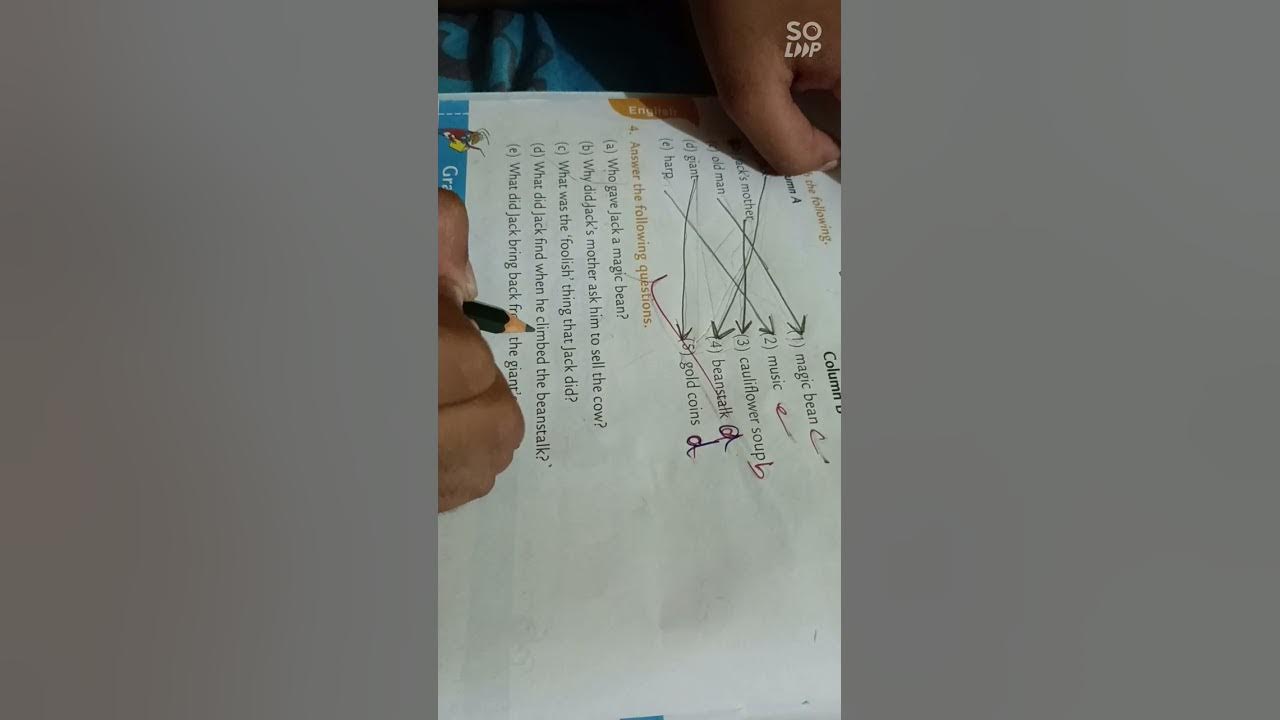 SO
LOOP
the following.
Column
(1) magic bean c
old man
2) music e
Jack's mother
(3) cauliflower soup b
(4) beanstalk a
(d) giant
(5) gold coins d
(e) harp
English
4. Answer the following questions.
(a) Who gave Jack a magic bean?
(b) Why did Jack's mother ask him to sell the cow?
(c) What was the 'foolish' thing that Jack did?
(d) What did Jack find when he climbed the beanstalk?
(e) What did Jack bring back the giant's